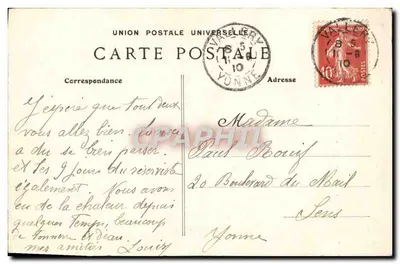 UNION POSTALE UNIVERSELLE
CARTE POSTALE
Correspondance
Adresse
VALLERY
8 5
11 -8
10
YONNE
VALLERY
8 5
11 -8
10
10
J'espère que tous deux
vous allez bien.
a du se bien passer
et les 9 jours du réserviste
également. Nous avons
eu de la chaleur depuis
quelques temps, beaucoup
de tonnerre et d'eau.
mes amitiés. Louis
Madame
Paul
20 Boulevard du Mail
Sens
Yonne